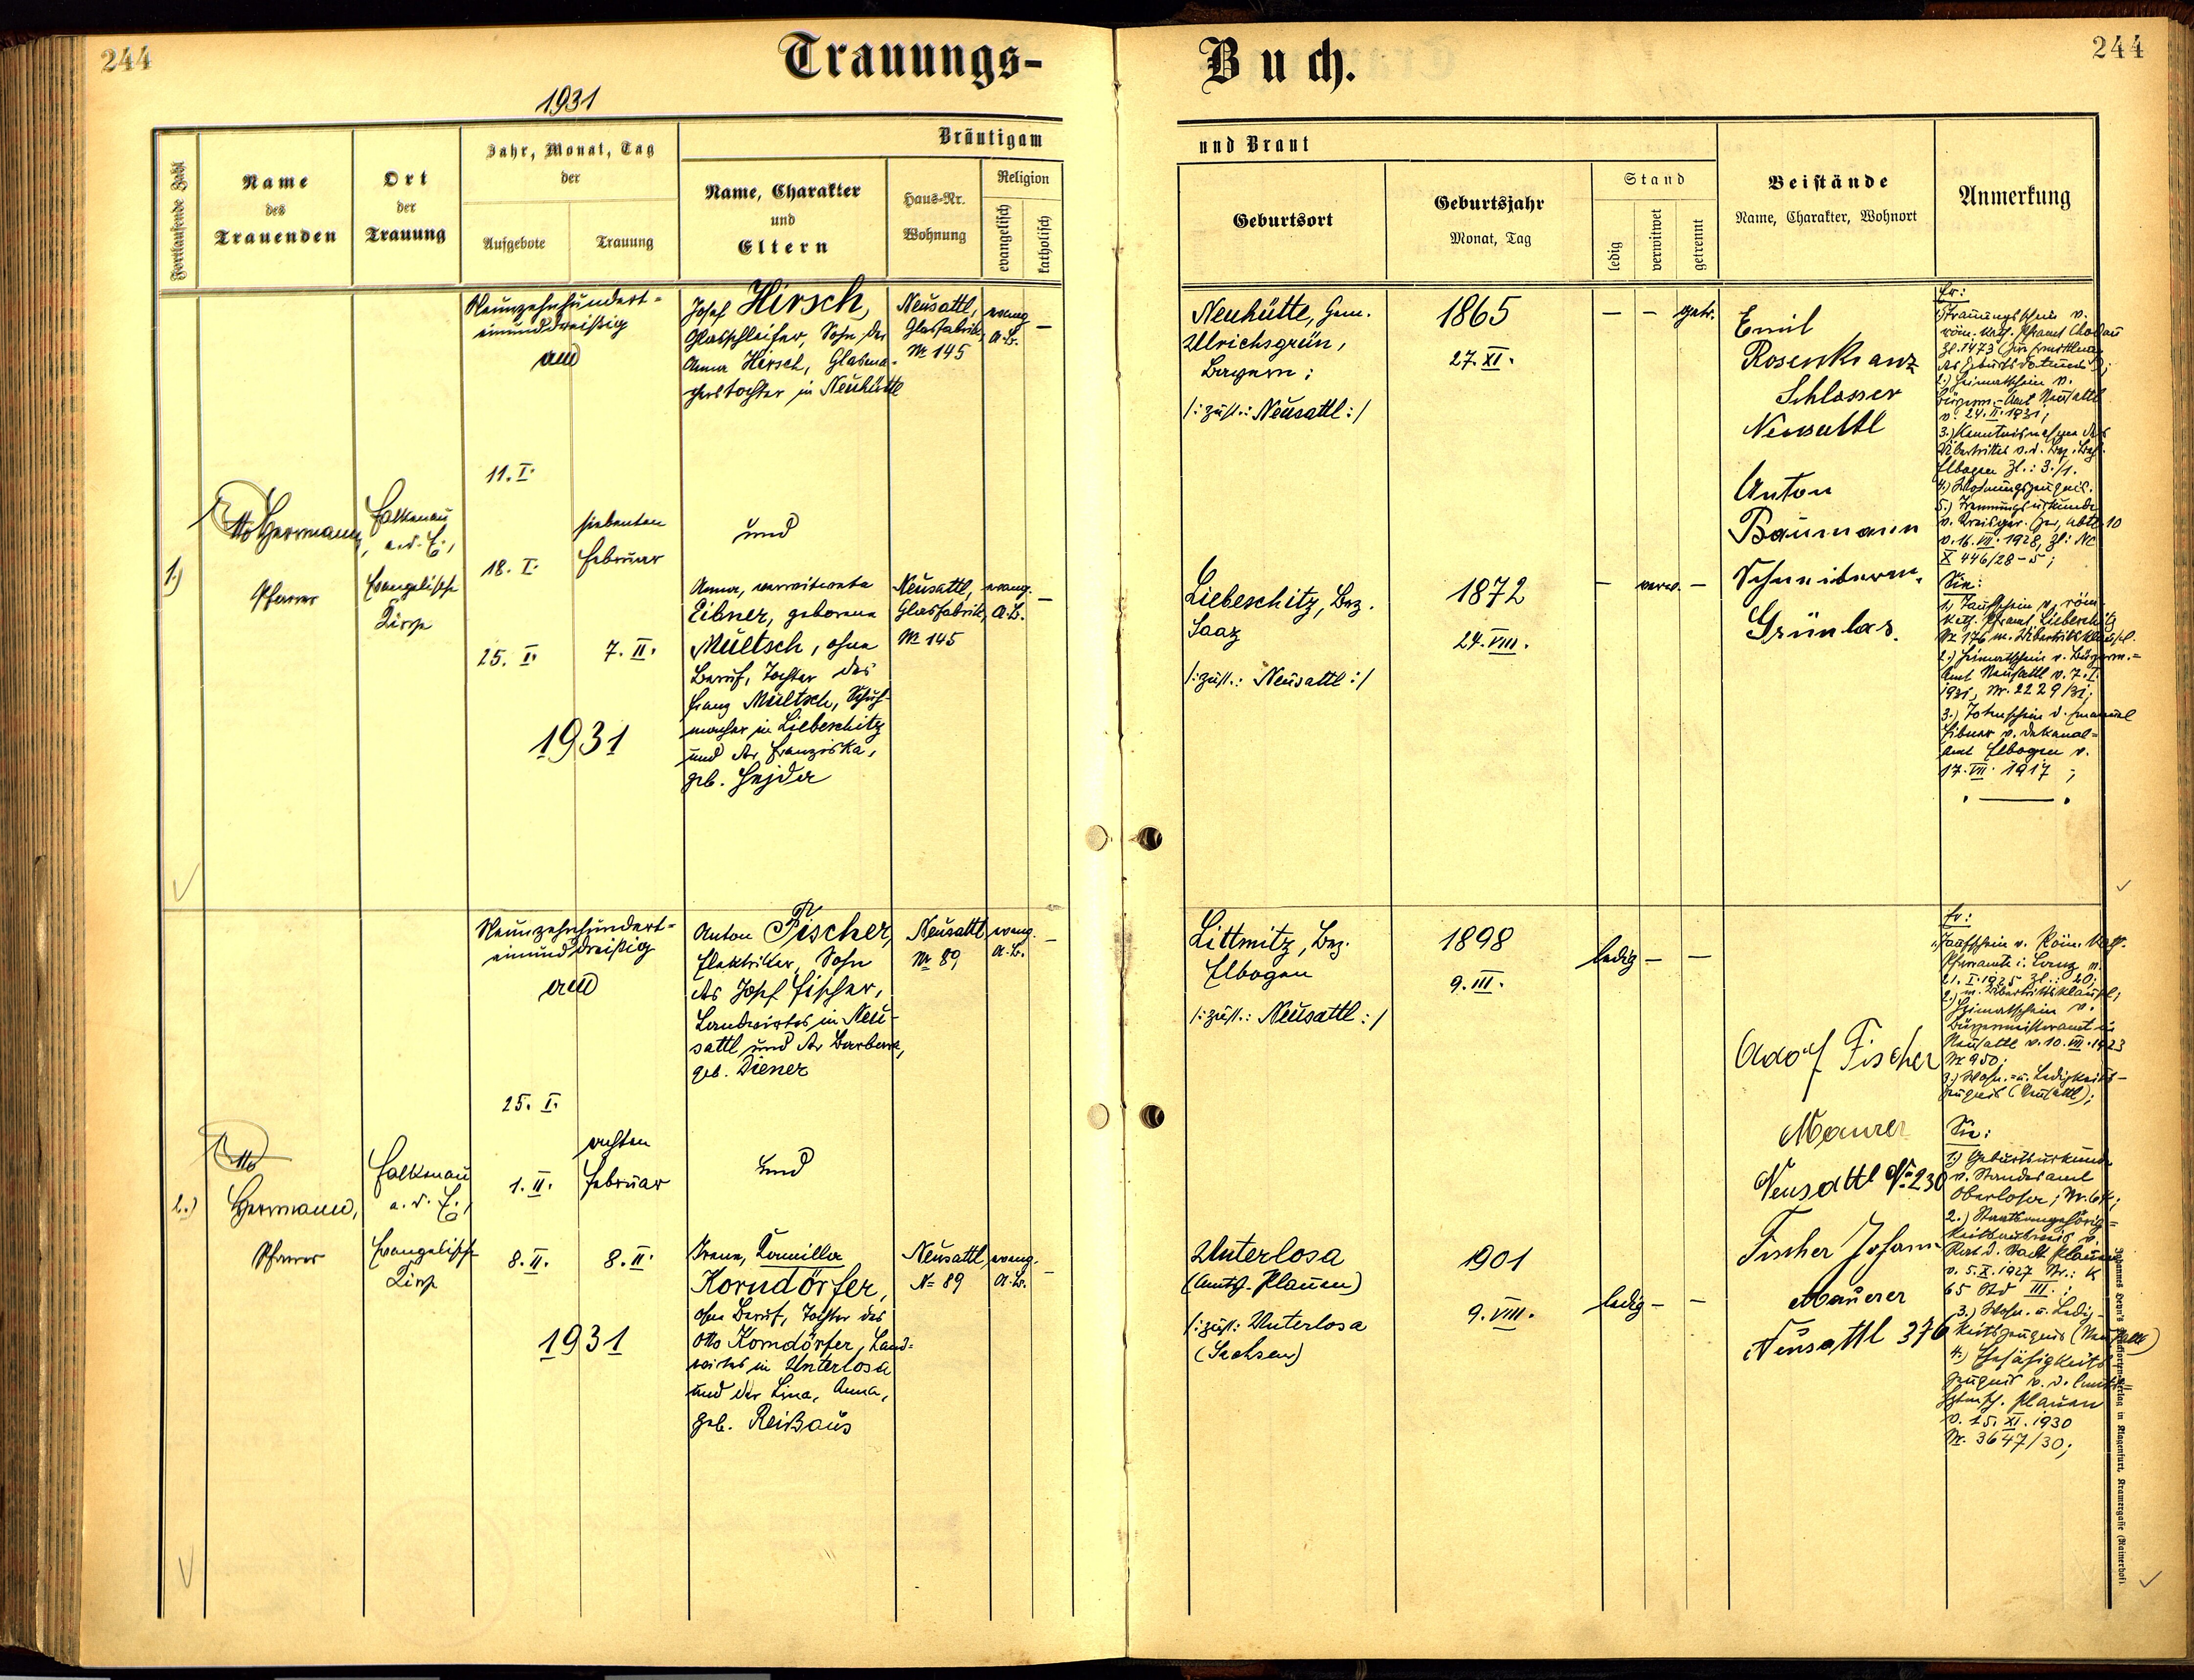 244
Trauungs-
Buch.
244
1931
Fortlaufende Zahl
Name
des
Trauenden
Ort
der
Trauung
Jahr, Monat, Tag
der
Aufgebote
Trauung
Bräutigam
Name, Charakter
und
Eltern
Haus-Nr.
Wohnung
Religion
evangelisch
katholisch
und Braut
Geburtsort
Geburtsjahr
Monat, Tag
Stand
ledig
verwitwet
getrennt
Beistände
Name, Charakter, Wohnort
Anmerkung
1.)
Otto Herrmann,
Pfarrer
Falkenau
a. d. E.,
Evangelische
Kirche
Neunzehnhundert-
einunddreißig
am
11. I.
18. I.
25. I.
siebenten
Februar
7. II.
1931
Josef Hirsch,
Glasschleifer, Sohn der
Anna Hirsch, Glasma-
cherstochter in Neuhütte
und
Anna, verwitwete
Eibner, geborene
Mültsch, ohne
Beruf, Tochter des
Franz Mültsch, Schuh-
macher in Liebeschitz
und der Franziska,
geb. Hejda
Neusattl,
Glasfabrik,
Nr 145
evang.
A.B.
–
Neusattl,
Glasfabrik,
Nr 145
evang.
A.B.
–
Neuhütte, Gem.
Ulrichsgrün,
Bayern;
/: zust.: Neusattl :/
1865
27. XI.
– – getr.
Liebeschitz, Bez.
Saaz
/: zust.: Neusattl :/
1872
24. VIII.
– verw. –
Emil
Rosenkranz
Schlosser
Neusattl
Anton
Baumann
Schneiderm.
Grünlas.
Er:
1.) Trauungsschein v.
röm. kath. Pfarramt Chodau
Zl. 1473 (zur Ermittlung
des Geburtsdatums);
2.) Heimatschein v.
Bürgerm.-Amt Neusattl
v. 24. II. 1931;
3.) Kenntnisnahme des
Übertrittes v. d. Bez. Beh.
Elbogen Zl.: 3./1.
4.) Wohnungszeugnis.
5.) Trennungsurkunde
v. Kreisger. Eger, Abtl. 10
v. 16. VII. 1928, Zl: Nc
X 446/28-5;
Sie:
1.) Taufschein v. röm.
kath. Pframt. Liebeschitz
Nr 176 m. Übertrittsklausel.
2.) Heimatschein v. Bürgerm.=
Amt Neusattl v. 7. I.
1931, Nr. 2229/31;
3.) Totenschein d. Emanuel
Eibner v. Dekanal=
amt Elbogen v.
17. VII. 1917;
2.)
Otto
Herrmann,
Pfarrer
Falkenau
a. d. E.,
Evangelische
Kirche
Neunzehnhundert-
einunddreißig
am
25. I.
1. II.
8. II.
achten
Februar
8. II.
1931
Anton Fischer,
Elektriker, Sohn
des Josef Fischer,
Landwirtes in Neu-
sattl und der Barbara,
geb. Diener
und
Irene, Camilla
Korndörfer,
ohne Beruf, Tochter des
Otto Korndörfer, Land=
wirtes in Unterlosa
und der Lina, Anna,
geb. Reißaus
Neusattl
Nr 89
evang.
A.B.
–
Neusattl
Nr 89
evang.
A.B.
–
Littmitz, Bez.
Elbogen
/: zust.: Neusattl :/
1898
9. III.
ledig – –
Unterlosa
(Amtsh. Plauen)
/: zust: Unterlosa
(Sachsen)
1901
9. VIII.
ledig – –
Adolf Fischer
Maurer
Neusattl No 230
Fischer Johann
Maurer
Neusattl 376
Er:
1.) Taufschein v. Röm. kath.
Pfarramte i. Lanz v.
21. I. 1925 Zl.: 20;
m. Übertrittsklausel;
2.) Heimatschein v.
Bürgermeisteramt in
Neusattl v. 10. VII. 1923
Nr 950;
3.) Wohn.- u. Ledigkeits-
zeugnis (Neusattl);
Sie:
1.) Geburtsurkunde
v. Standesamt
Oberlosa;
2.) Staatsangehörig=
keitsausweis v.
Rat d. Stadt Plauen
v. 5. X. 1927 Nr.: K
65 Std III.;
3.) Wohn. u. Ledig-
keitszeugnis (Neusattl)
4.) Ehefähigkeits-
zeugnis v. d. Amts=
hptmsch. Plauen
v. 25. XI. 1930
Nr. 3647/30;
Johannes Heyn's Drucksortenverlag in Klagenfurt, Kramergasse (Rainerhof).